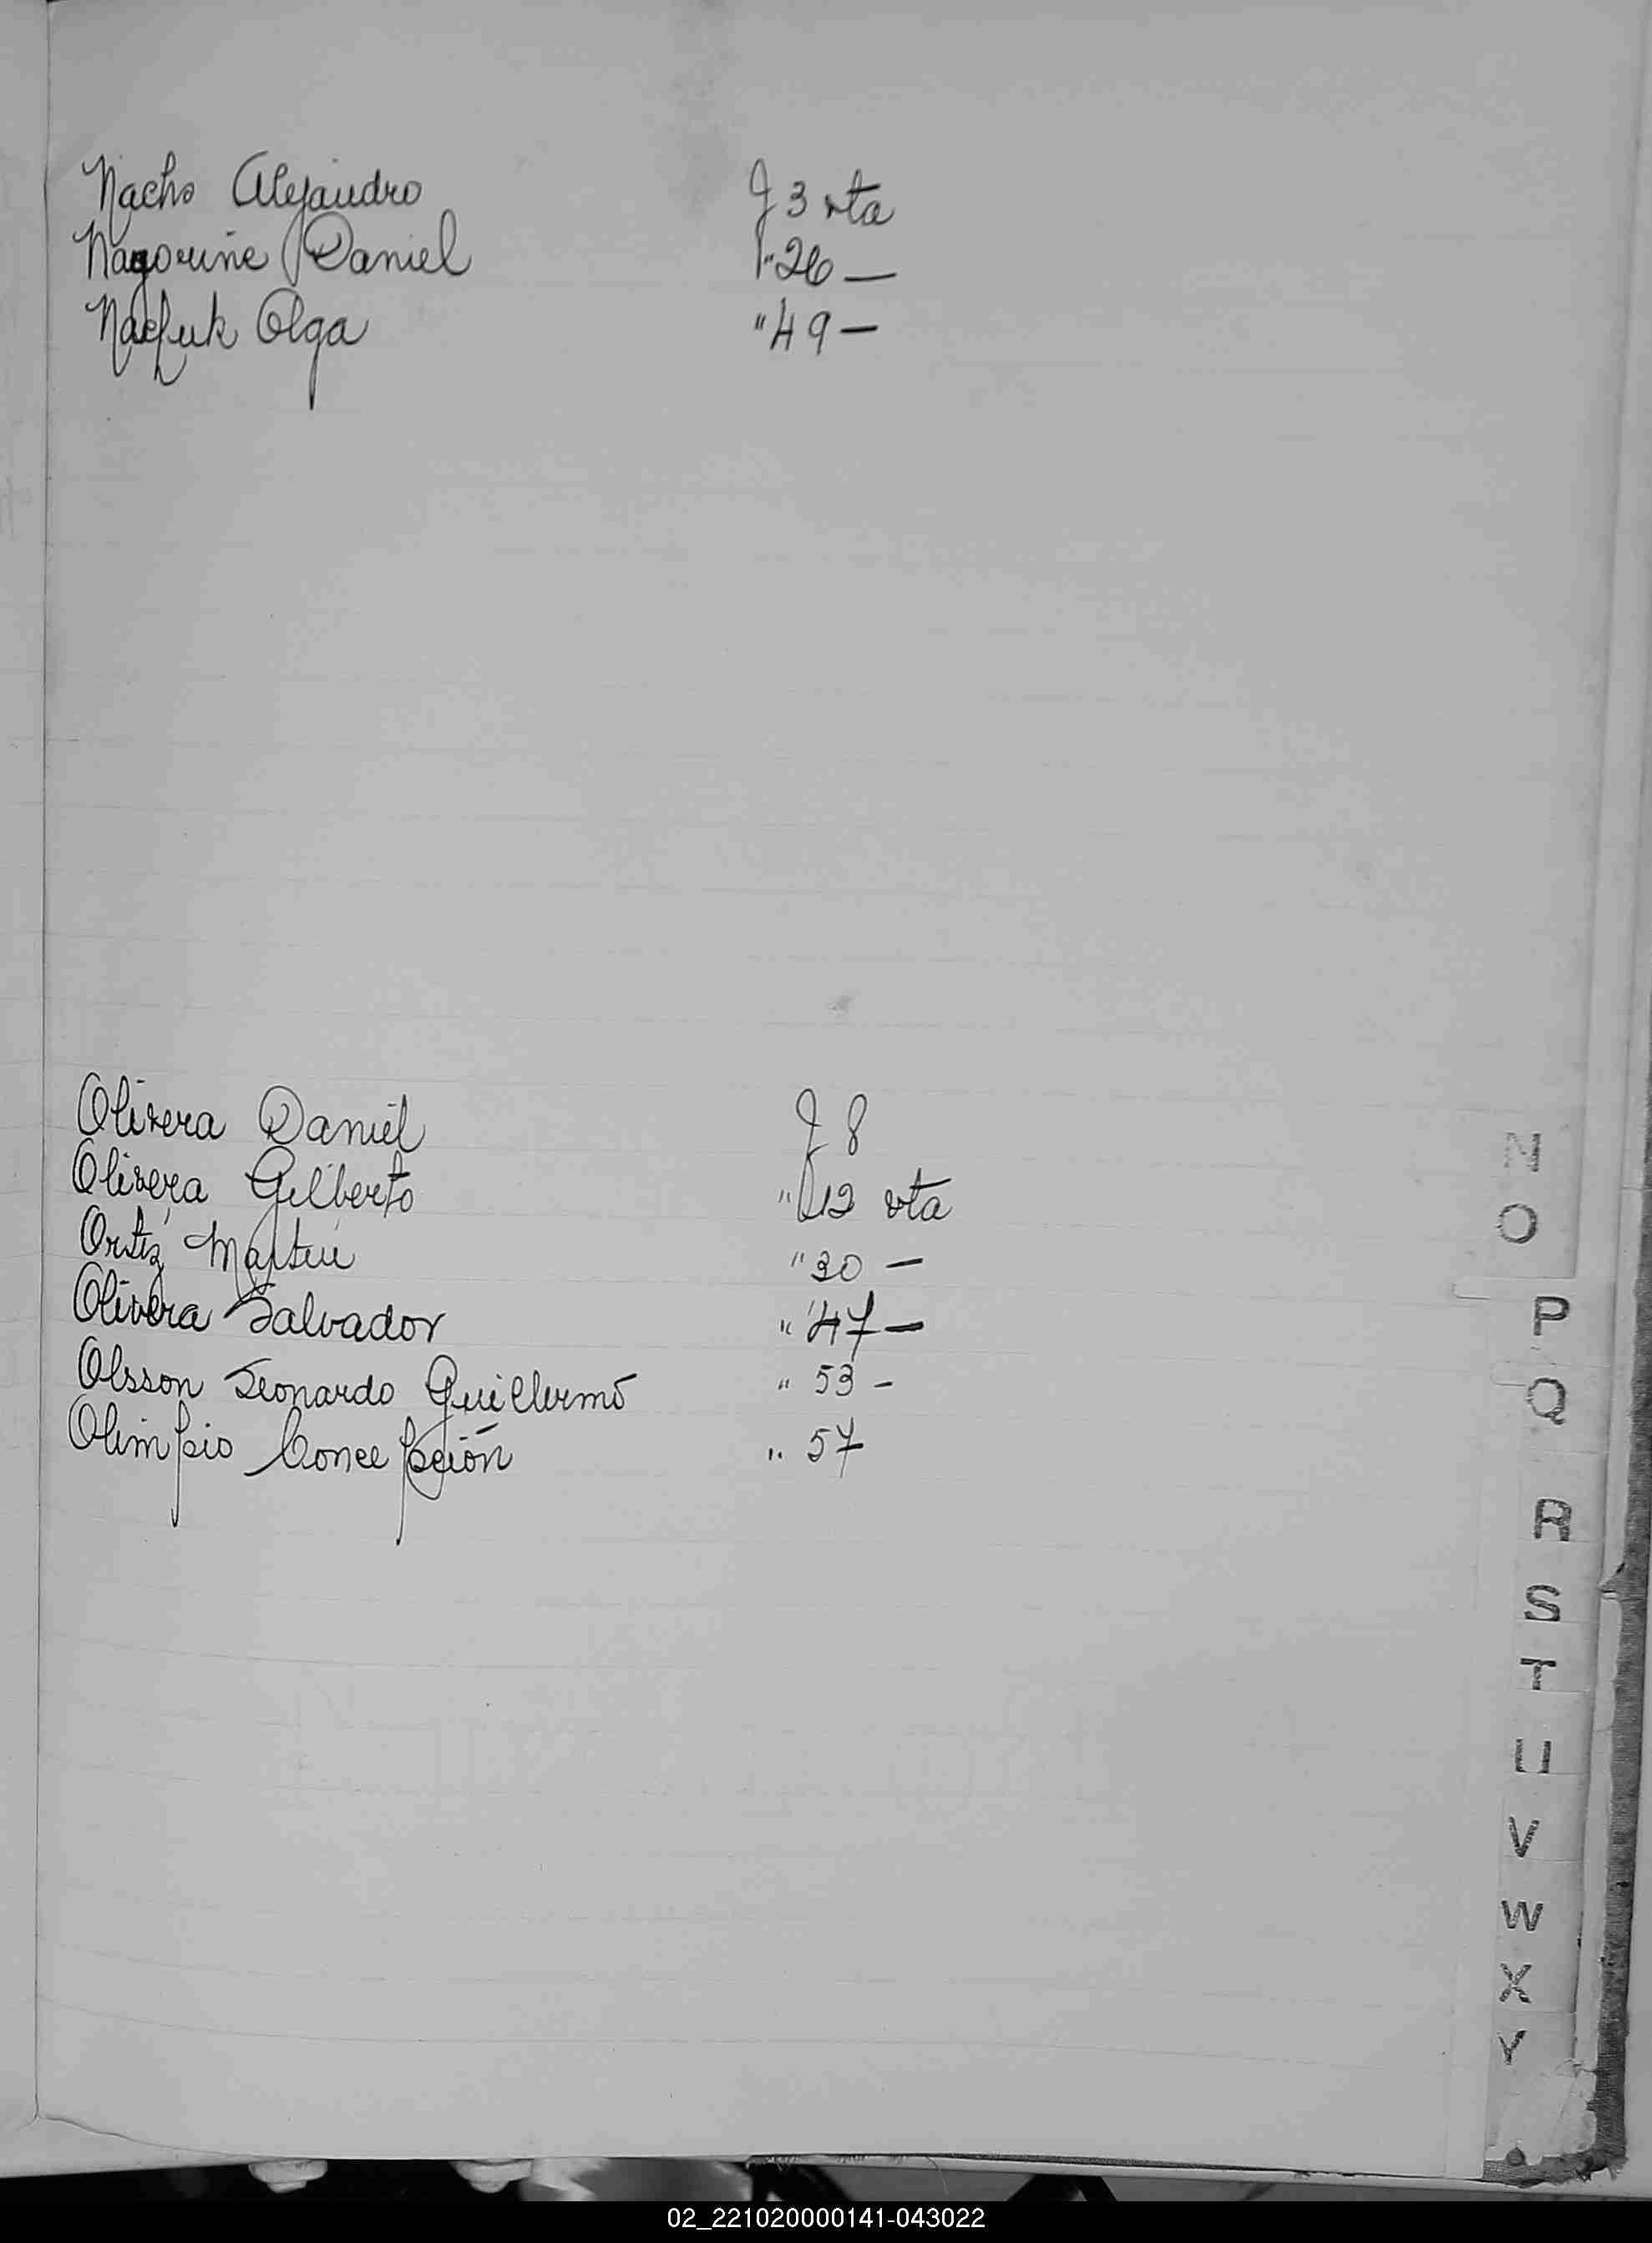 Nacho Alejandro J 3 vta
Nagorine Daniel " 26 —
Olga " 49 —
Olivera Daniel J 8
Olivera Gilberto " 12 vta
Ortiz Martin " 30 —
Olivera Salvador " 47 —
Olsson Leonardo Guillermo " 53 -
Olimpio Concepción " 57
N
O
P
Q
R
S
T
U
V
W
X
Y
02_221020000141-043022